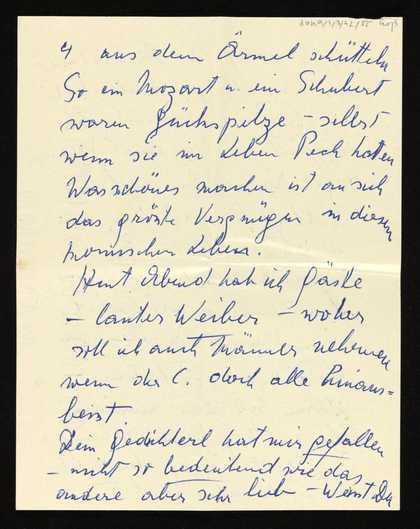 4) aus dem Ärmel schütteln
So ein Mozart u. ein Schubert
waren Glückspilze – selbst
wenn sie im Leben Pech hatten
Was schönes machen ist an sich
das größte Vergnügen in diesem
komischen Leben.
Heut Abend hab ich Gäste
– lauter Weiber – woher
soll ich auch Männer nehmen
wenn der C. doch alle hinaus=
beisst.
Dein Gedichterl hat mir gefallen
– nicht so bedeutend wie das
andere aber sehr lieb – Weist Du